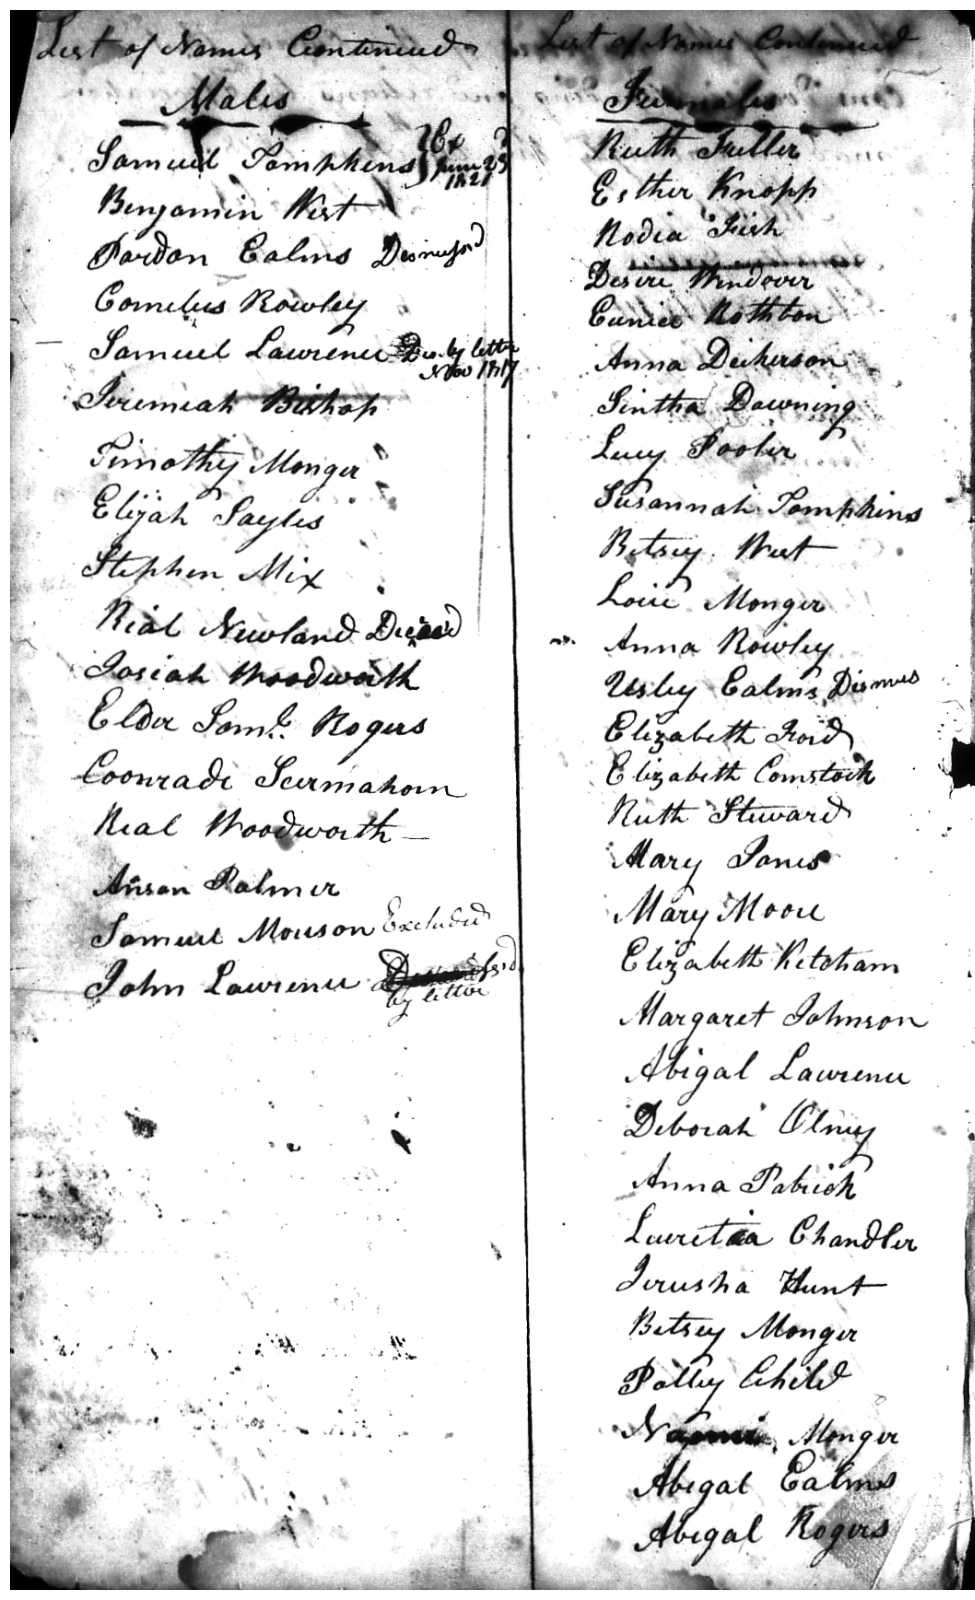 List of Names Continued
Males
Samuel Tompkins Ex
June 23
1821
Benjamin West
Pardon Ealms Dismissd
Cornelus Rowley
Samuel Lawrence Dis. by letter
Nov 1817
Jeremiah Bishop
Timothy Monger
Elijah Sayles
Stephen Mix
Rial Newland Deceasd
Josiah Woodworth
Elder Saml. Rogers
Coonrade Scermahorn
Real Woodworth
Anson Palmer
Samuel Monson Excluded
John Lawrence
by letter
List of Names Continued
Females
Ruth Fuller
Esther Knapp
Rodia Fish
Desire Windover
Eunice Rothbon
Anna Dickerson
Sintha Downing
Lucy Pooler
Susannah Tompkins
Betsey West
Loise Monger
Anna Rowley
Usley Ealms Dismiss
Elizabeth Foid
Elizabeth Comstock
Ruth Steward
Mary Jones
Mary Moore
Elizabeth Ketcham
Margaret Johnson
Abigal Lawrence
Deborah Olney
Anna Patrick
Lucretia Chandler
Jerusha Hunt
Betsey Monger
Polley Child
Naomi Monger
Abegal Ealms
Abegal Rogers